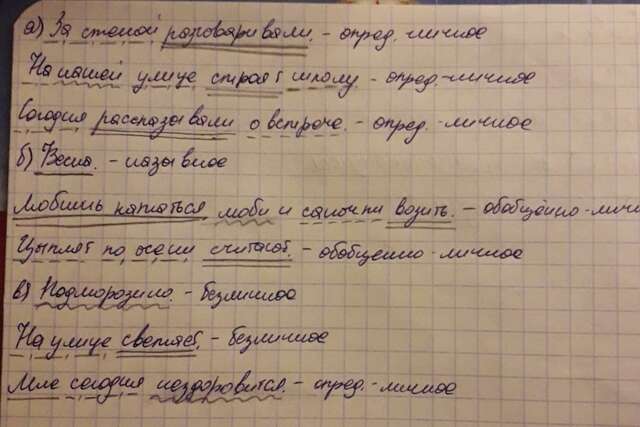 а) За стеной разговаривали. - опред.-личное
На нашей улице строят школу - опред.-личное
Сегодня рассказывали о встрече. - опред.-личное
б) Весна. - назывное
Любишь кататься, люби и саночки возить. - обобщённо-личн
Цыплят по осени считают. - обобщенно-личное
в) Подморозило. - безличное
На улице светлеет. - безличное
Мне сегодня нездоровится. - опред.-личное